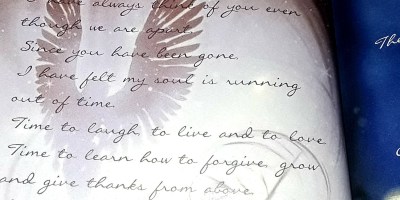 always think of you even
though we are apart.
Since you have been gone
I have felt my soul is running
out of time.
Time to laugh to live and to love
Time to learn how to forgive, grow
and give thanks from above